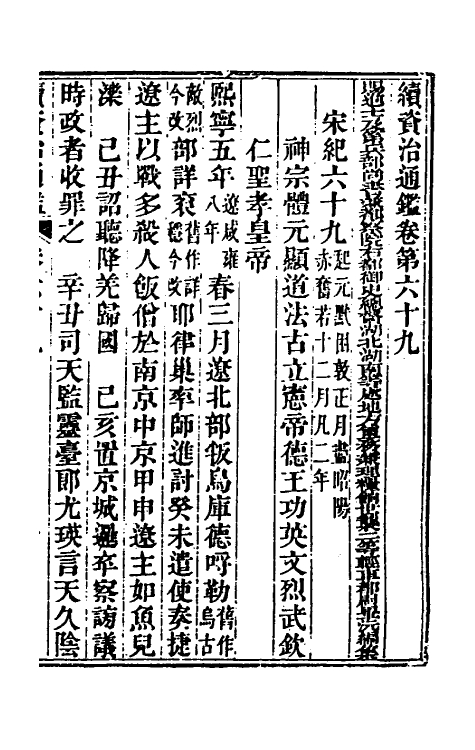 續資治通鑑卷第六十九
宋紀六十九起元黓困敦正月盡昭陽赤奮若十二月凡二年
神宗體元顯道法古立憲帝德王功英文烈武欽
仁聖孝皇帝
熙寧五年遼咸雍八年春三月遼北部飯烏庫德哷勒舊作烏古
敵烈今改部詳衮舊作詳穩今改耶律巢率師進討癸未遣使奏捷
遼主以戰多殺人飯僧於南京中京甲申遼主如魚兒
濼 己丑詔聽降羌歸國 己亥置京城邏卒察謗議
時政者收罪之 辛丑司天監靈臺郎尤瑛言天久陰